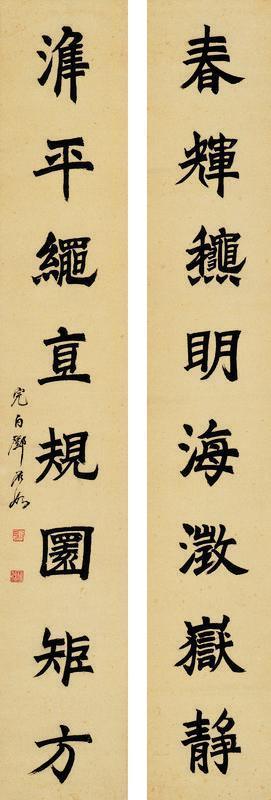 春輝龝明海澂嶽靜
準平繩直規圜矩方
完白鄧石如